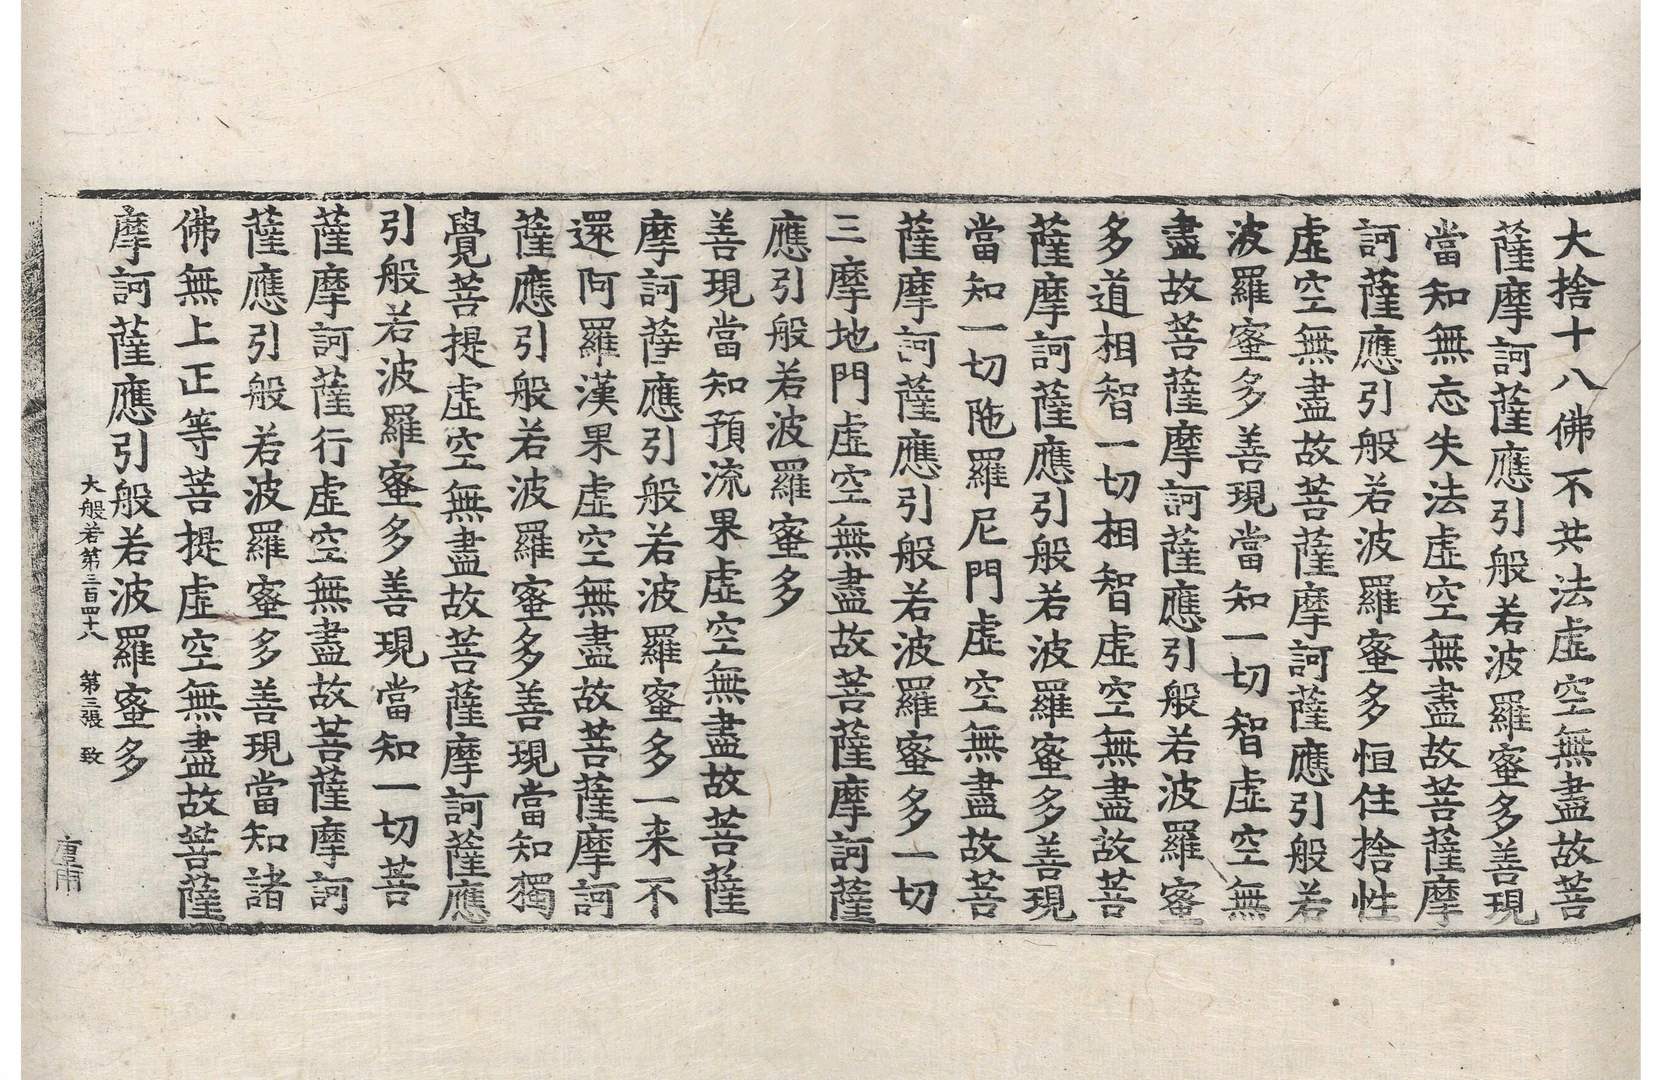 大捨十八佛不共法虛空無盡故菩
薩摩訶薩應引般若波羅蜜多善現
當知無忘失法虛空無盡故菩薩摩
訶薩應引般若波羅蜜多恒住捨性
虛空無盡故菩薩摩訶薩應引般若
波羅蜜多善現當知一切智虛空無
盡故菩薩摩訶薩應引般若波羅蜜
多道相智一切相智虛空無盡故菩
薩摩訶薩應引般若波羅蜜多善現
當知一切陁羅尼門虛空無盡故菩
薩摩訶薩應引般若波羅蜜多一切
三摩地門虛空無盡故菩薩摩訶薩
應引般若波羅蜜多
善現當知預流果虛空無盡故菩薩
摩訶薩應引般若波羅蜜多一来不
還阿羅漢果虛空無盡故菩薩摩訶
薩應引般若波羅蜜多善現當知獨
覺菩提虛空無盡故菩薩摩訶薩應
引般若波羅蜜多善現當知一切菩
薩摩訶薩行虛空無盡故菩薩摩訶
薩應引般若波羅蜜多善現當知諸
佛無上正等菩提虛空無盡故菩薩
摩訶薩應引般若波羅蜜多
大般若第三百四十八 第三張 致